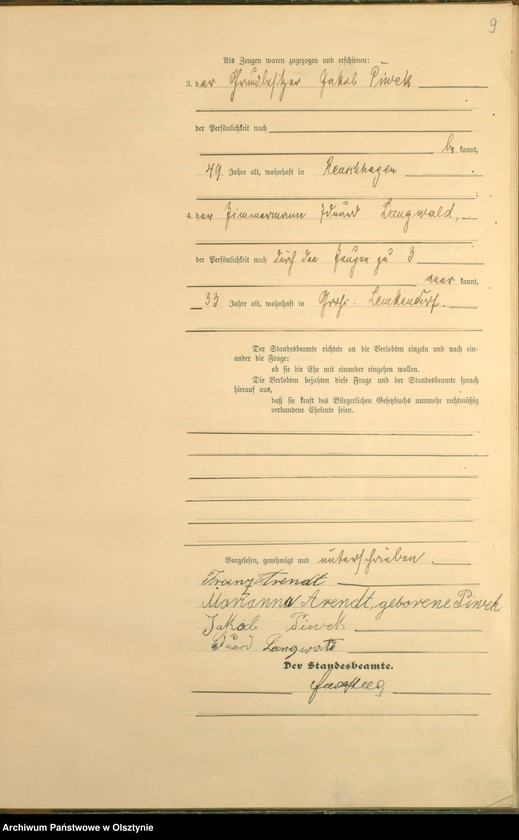 9
Als Zeugen waren zugezogen und erschienen:
3. der Grundbesitzer Jakob Piwek
der Persönlichkeit nach
be kannt,
49 Jahre alt, wohnhaft in Reuschhagen
4. der Zimmermann Eduard Langwald,
der Persönlichkeit nach durch den Zeugen zu 3
aner kannt,
33 Jahre alt, wohnhaft in Groß-Lemkendorf.
Der Standesbeamte richtete an die Verlobten einzeln und nach ein-
ander die Frage:
ob sie die Ehe mit einander eingehen wollen.
Die Verlobten bejahten diese Frage und der Standesbeamte sprach
hierauf aus,
daß sie kraft des Bürgerlichen Gesetzbuchs nunmehr rechtmäßig
verbundene Eheleute seien.
Vorgelesen, genehmigt und unterschrieben.
Franz Arendt
Marianna Arendt, geborene Piwek
Jakob Piwek
Eduard Langwald
Der Standesbeamte.
Archiwum Państwowe w Olsztynie